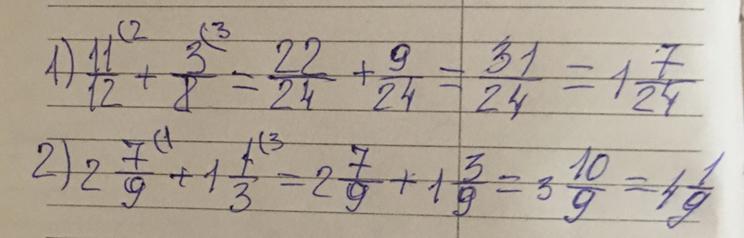 1) 11/12 (2 + 3/8 (3 = 22/24 + 9/24 = 31/24 = 1 7/24
2) 2 7/9 (1 + 1 1/3 (3 = 2 7/9 + 1 3/9 = 3 10/9 = 4 1/9